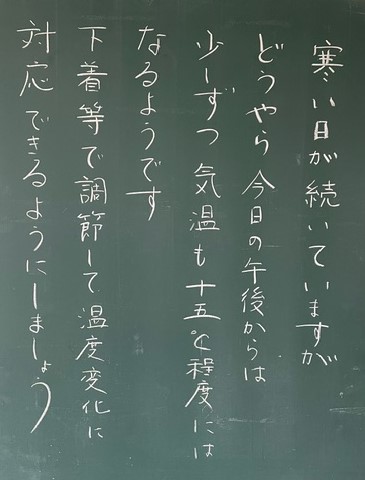 寒い日が続いていますが
どうやら今日の午後からは
少しずつ気温も十五℃程度には
なるようです
下着等で調節して温度変化に
対応できるようにしましょう